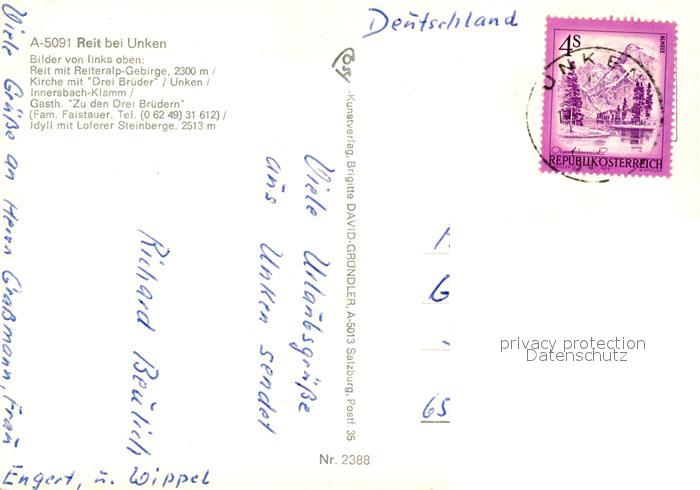 A-5091 Reit bei Unken
Bilder von links oben:
Reit mit Reiteralp-Gebirge, 2300 m /
Kirche mit "Drei Brüder" / Unken /
Innersbach-Klamm /
Gasth. "Zu den Drei Brüdern"
(Fam. Faistauer, Tel. (0 62 49) 31 612) /
Idyll mit Loferer Steinberge, 2513 m
Viele Urlaubsgrüße
aus Unken sendet
Richard Beulich
Viele Grüße an Herrn Graßmann, Frau
Engert, u. Wippel
-Kunstverlag, Brigitte DAVID-GRÜNDLER, A-5013 Salzburg, Postf. 35
Nr. 2388
Deutschland
4 S
ALMSEE
REPUBLIK ÖSTERREICH
UNKEN
65
privacy protection
Datenschutz